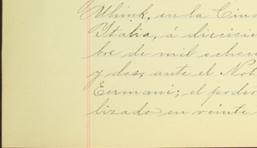 Uhink, en la Ciu
Italia, á diecisie
bre de mil ochocien
y dos, ante el Not
Eermani; el poder
lizado en veinte